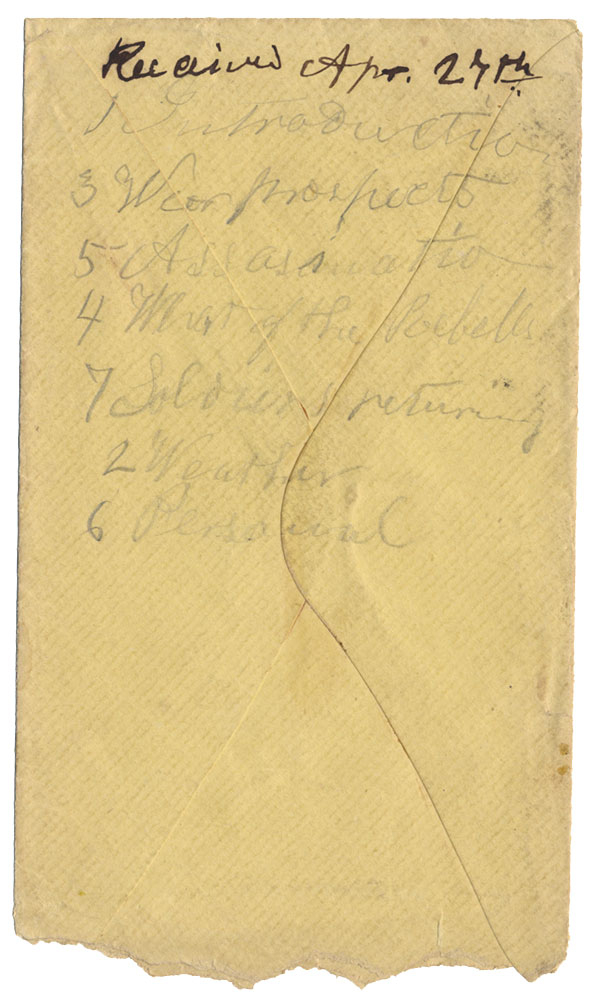 Received Apr. 27th
1 Introduction
3 War prospects
5 Assasinatio
4 What of the Rebells
7 Soldiers returning
2 Weather
6 Personal